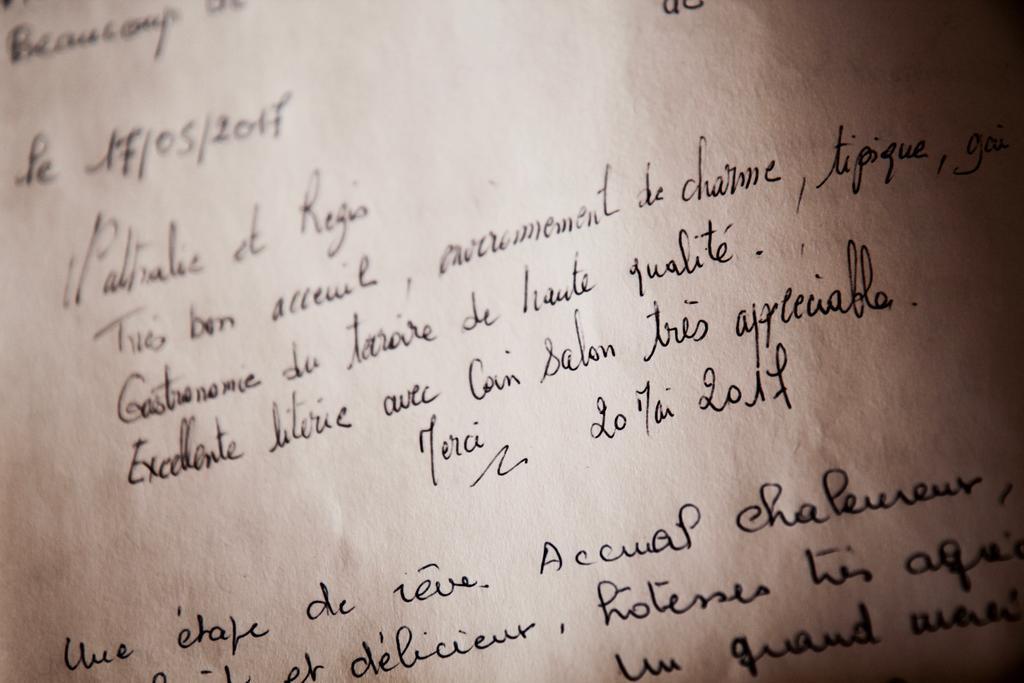 Beaucoup de
de
le 17/05/2017
Nathalie et Regis
Très bon acceuil, environnement de charme, tipique, gai
Gastronomie du terroire de haute qualité.
Excellente literie avec Coin Salon très appreciable.
Merci 20 Mai 2017
Une étape de rêve. Accueil chaleureux,
et délicieux, hôtesses très
Un grand merci